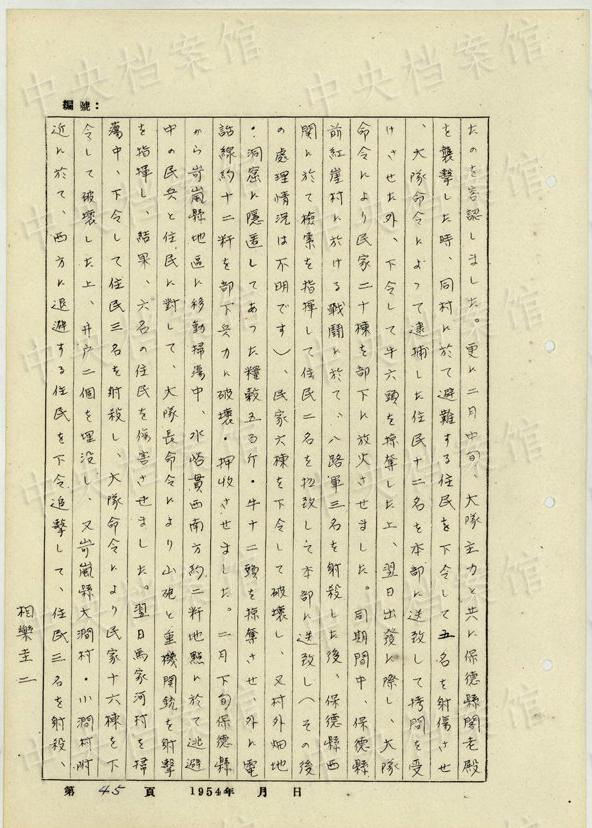 編號：
たのを容認しました。更に二月中旬、大隊主力と共に保德縣閻老殿
を襲撃した時、同村に於て避難する住民を下令して五名を射傷させ
、大隊命令によつて逮捕した住民十二名を本部に送致して拷問を受
けさせた外、下令して牛六頭を掠奪した上、翌日出發に際し、大隊
命令により民家二十棟を部下に放火させました。同期間中、保德縣
前紅崖村に於ける戰鬪に於て、八路軍三名を射殺した後、保德縣西
關に於て檢索を指揮して住民二名を拉致して本部に送致し（その後
の處理情況は不明です）、民家六棟を下令して破壞し、又村外畑地
・洞窯に隱匿してあつた糧穀五百斤・牛十二頭を掠奪させ、外に電
話線約十二粁を部下兵力に破壞・押收させました。二月下旬保德縣
から岢嵐縣地區に移動掃蕩中、水峪貫西南方約二粁地點に於て逃避
中の民兵と住民に對して、大隊長命令により山砲と重機関銃を射撃
を指揮し、結果、六名の住民を傷害させました。翌日馬家河村を掃
蕩中、下令して住民三名を射殺し、大隊命令により民家十六棟を下
令して破壞した上、井戸二個を埋没し、又岢嵐縣大澗村・小澗村附
近に於て、西方に退避する住民を下令追擊して、住民三名を射殺、
相樂圭二
第 45 頁 1954年 月 日
中央档案馆